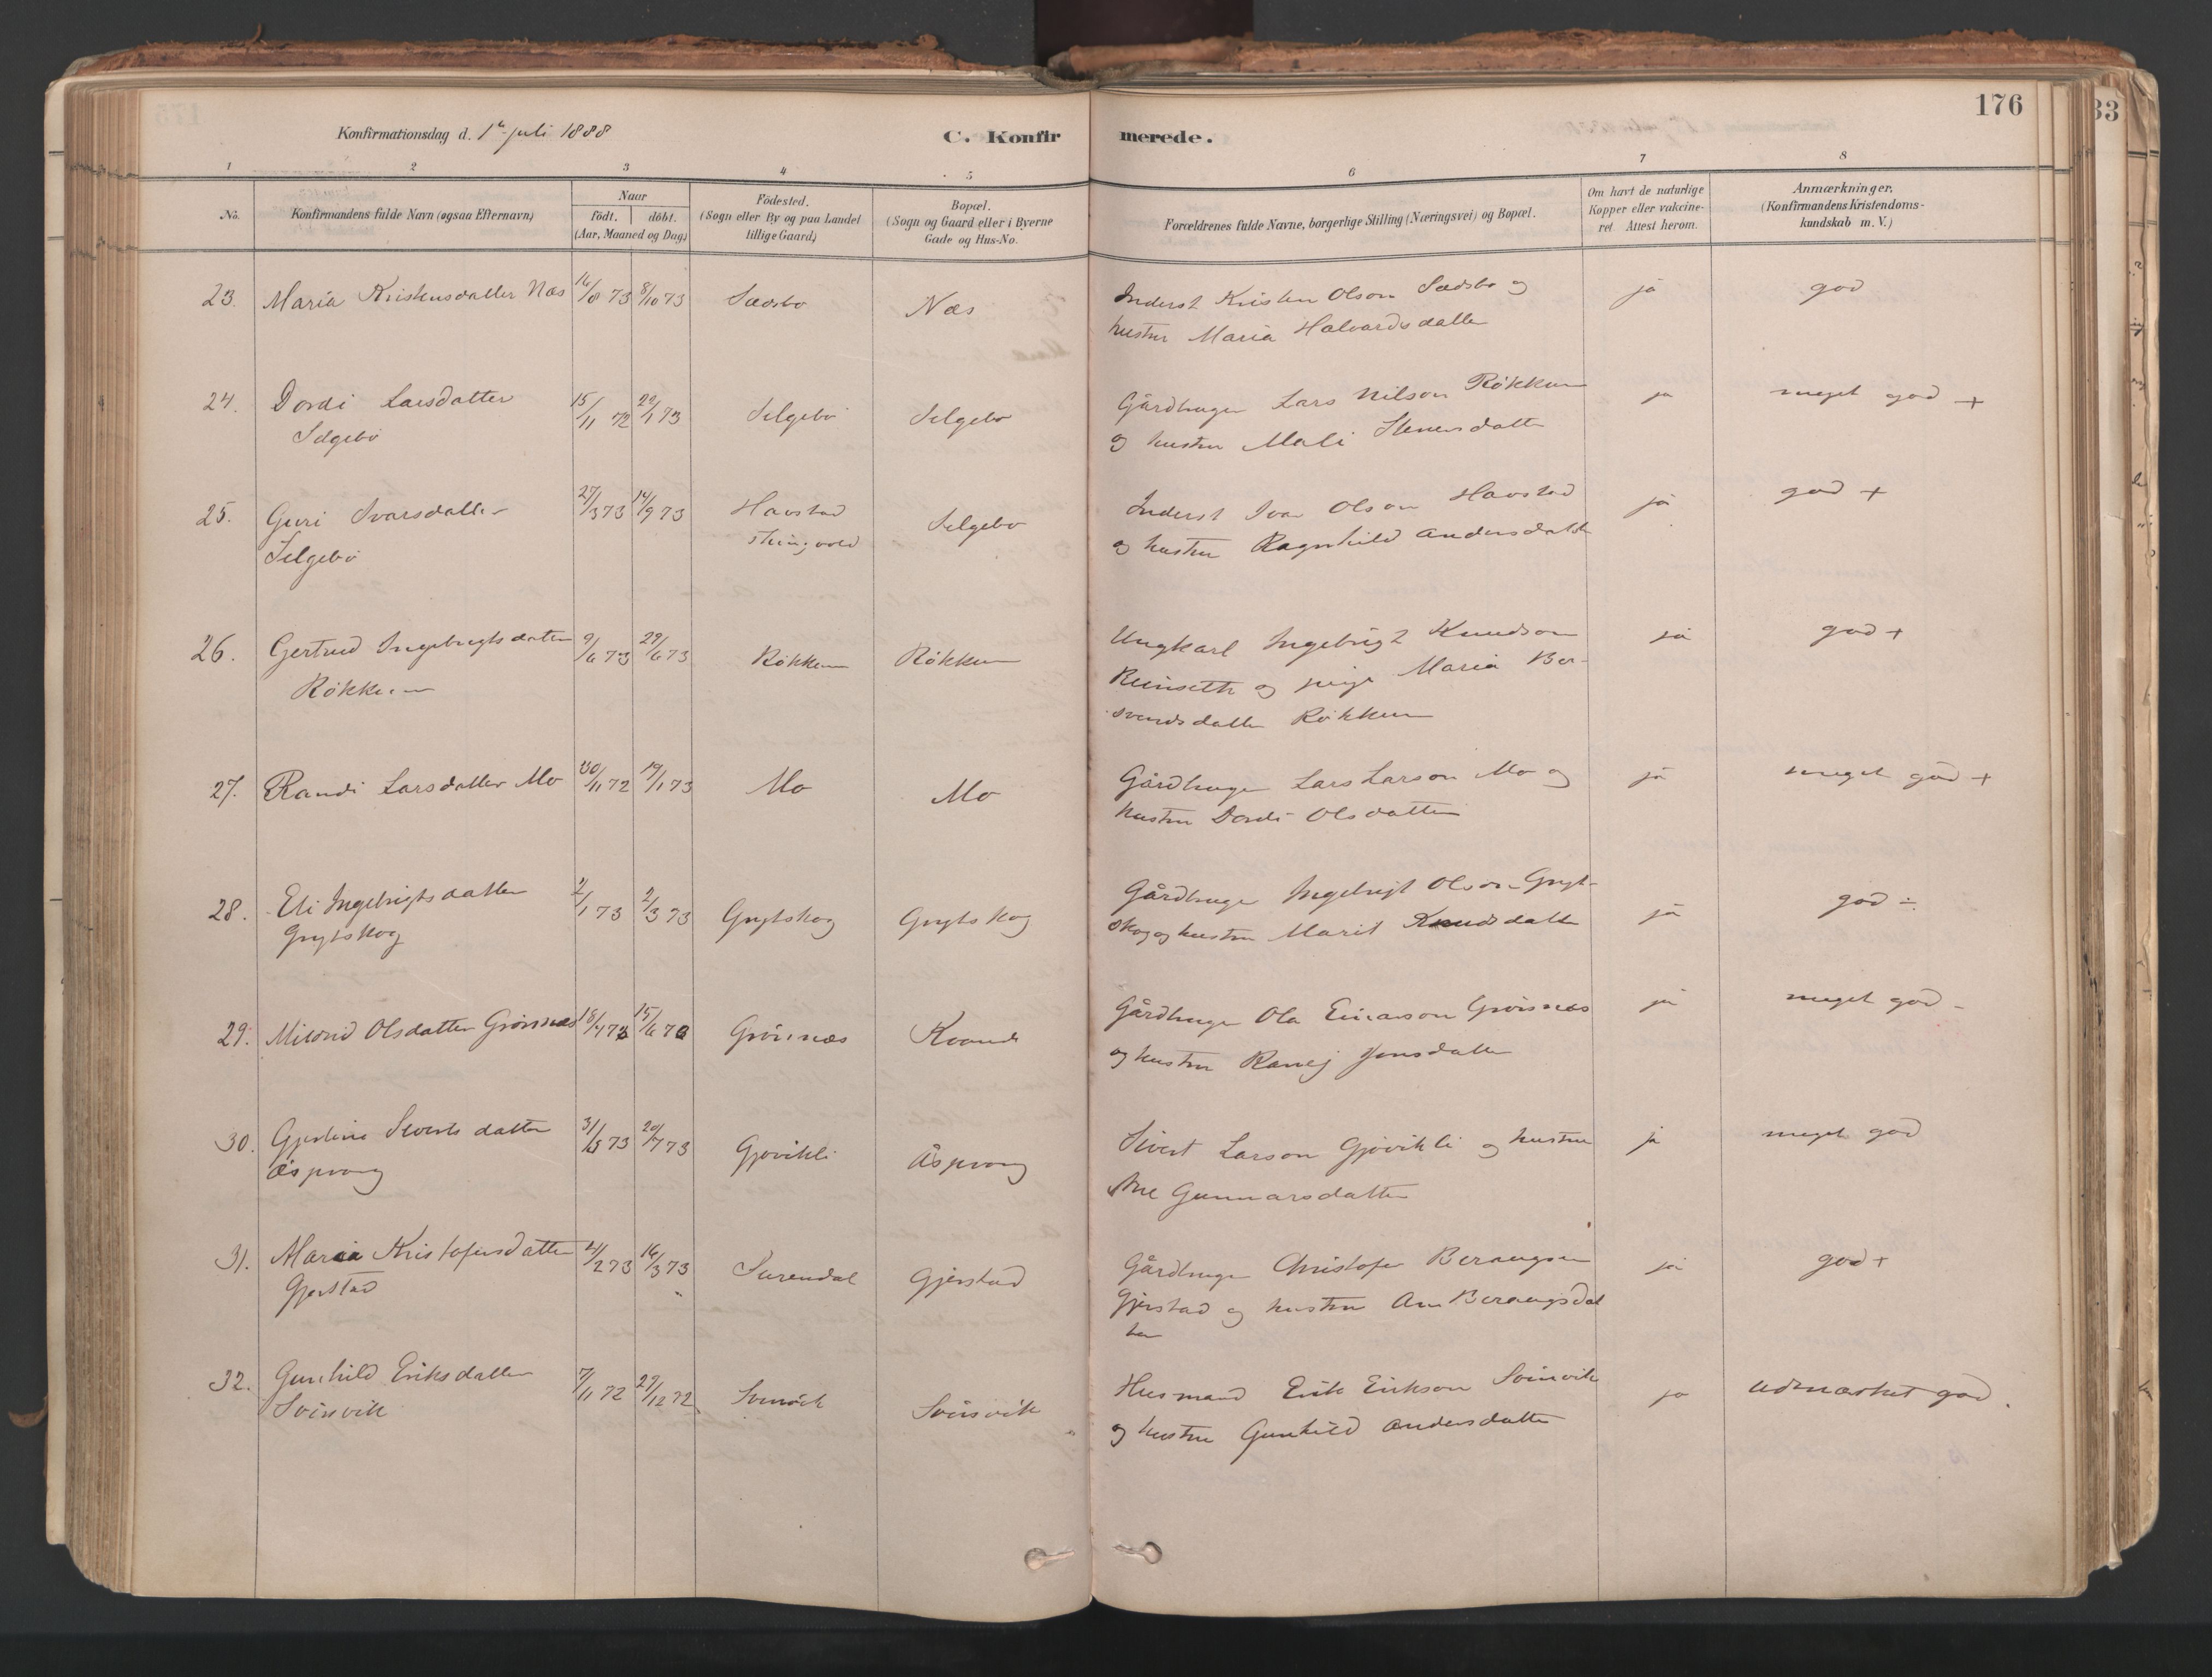 176
Konfirmationsdag d. 1ste juli 1888
C. Konfirmerede.
1 2 3 4 5 6 7 8
No.
Konfirmandens fulde Navn (ogsaa Efternavn)
Naar
födt. döbt.
(Aar, Maaned og Dag)
Födested.
(Sogn eller By og paa Landet
tillige Gaard)
Bopæl.
(Sogn og Gaard eller i Byerne
Gade og Hus-No.
Forældrenes fulde Navne, borgerlige Stilling (Næringsvei) og Bopæl.
Om havt de naturlige
Kopper eller vakcine-
ret Attest herom.
Anmærkninger.
(Konfirmandens Kristendoms-
kundskab m. V.)
23. Maria Kristensdatter Næs 16/8 73 8/10 73 Sædsbø Næs Inderst Kristen Olson Sædsbø og ja god
hustru Maria Halvardsdatter
24. Dordi Larsdatter 15/11 72 22/1 73 Selgebö Selgebö Gårdbruger Lars Nilson Røkkum ja meget god +
Selgebö og hustru Mali Stenersdatter
25. Guri Ivarsdatter 27/3 73 14/9 73 Havstad Selgebö Inderst Ivar Olson Havstad ja god +
Selgebö Thingvold og hustru Ragnhild Andersdatter
26. Gertrud Ingebrigtsdatter 9/6 73 29/6 73 Røkkum Røkkum Ungkarl Ingebrigt Knudson ja god +
Røkkum Reinseth og pige Maria Ber-
svendsdatter Røkkum
27. Randi Larsdatter Mo 30/11 72 19/1 73 Mo Mo Gårdbruger Lars Larson Mo og ja meget god +
hustru Dordi Olsdatter
28. Eli Ingebrigtsdatter 2/1 73 2/3 73 Grytskog Grytskog Gårdbruger Ingebrigt Olson Gryt- ja god ÷
Grytskog skog og hustru Marit Knudsdatter
29. Mildrid Olsdatter Grönnæs Grönnæs Kvande Gårdbruger Ola Einarson Grönnæs ja meget god -
og hustru Ranej Jonsdatter
30. Gjertine Sivertsdatter 31/5 73 20/7 73 Gjøvikli Åsprong Sivert Larson Gjøvikli og hustru ja meget god
Åsprong Ane Gunnarsdatter
31. Maria Kristofersdatter 4/2 73 16/3 73 Surendal Gjerstad Gårdbruger Christofer Beraugsen ja god +
Gjerstad Gjerstad og hustru Ane Beraugsdat
ter
32. Gunhild Eriksdatter 7/11 72 27/12 72 Svinvik Svinvik Husmand Erik Erikson Svinvik ja udmærket god.
Svinvik og hustru Gunhild Andersdatter